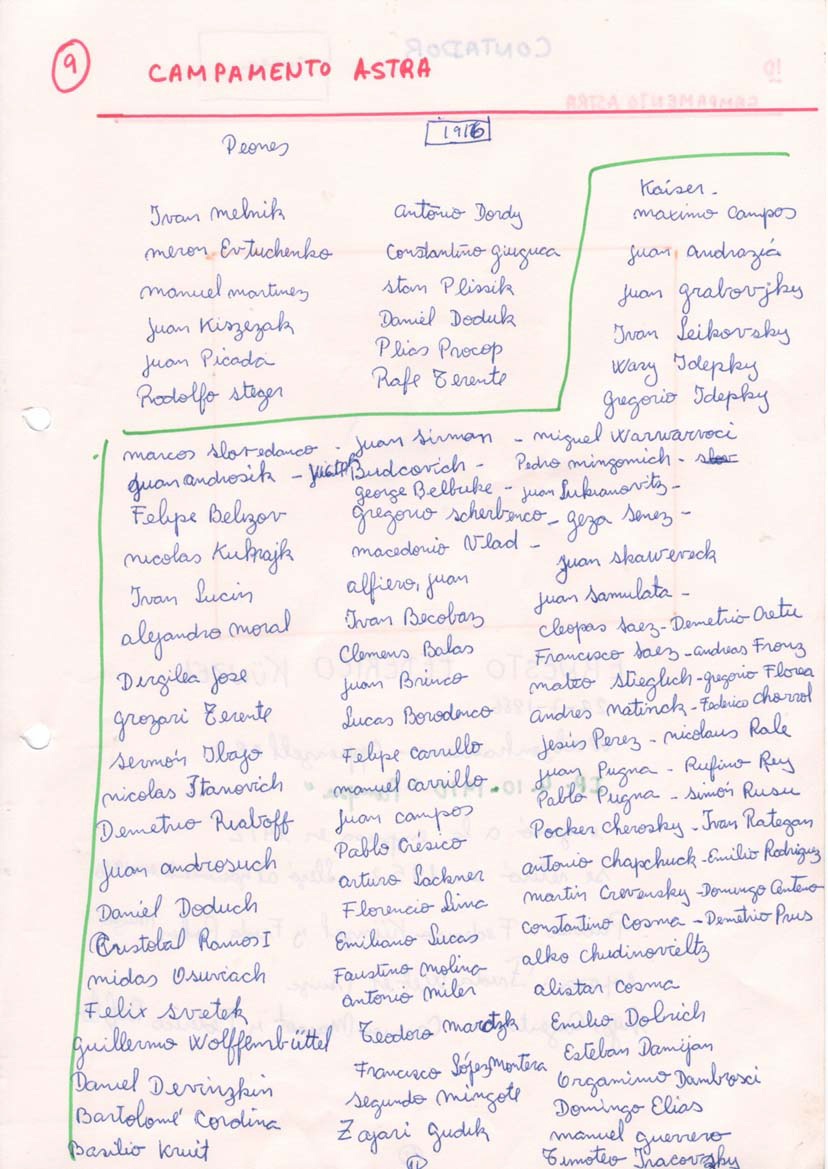 9
CAMPAMENTO ASTRA
1916
Peones
Ivan Melnik
Antonio Dordy
Meron Evtuchenko
Constantino Giuguca
Manuel Martinez
Stan Plissik
Juan Kiszezak
Daniél Doduk
Juan Picada
Plias Procop
Rodolfo Steger
Rafe Terente
Kaiser -
Maximo Campos
Juan Andraziá
Juan Grabovjky
Ivan Leikovsky
Wasy Idepky
Gregorio Idepky
Marcos Slovedanco - Juan Sirman - Miguel Warwarvoci
Juan Androsik - Budcovich - Pedro Mingomich -
George Belbuke - Juan Lukianovitz -
Felipe Belizov Gregorio Scherbenco - Geza Senez -
Nicolas Kukrajk Macedonio Vlad - Juan Skawereck
Ivan Lucin Alfiero, Juan Juan Samulata -
Alejandro Moral Ivan Becobaz Cleopas Saez - Demetrio Cretu
Clemens Balas Francisco Saez - Andreas Fronz
Dirgilea Jose Juan Brinco Mateo Stieglich - Gregorio Florea
Grozari Terente Lucas Borodenco Andres Matinck - Federico Chorrol
Sermón Ibajo Felipe Carrullo Jesús Perez - Nicolaus Rale
Nicolas Itanovich Manuel Carrillo Juan Pugna - Rufino Rey
Demetrio Riaboff Juan Campos Pablo Pugna - Simón Rusu
Juan Androsuch Pablo Crésico Pocker Cherosky - Ivan Rategan
Daniél Doduch Arturo Lackner Antonio Chapchuck - Emilio Rodriguz
Cristobal Ramos I Florencio Luna Martin Crevensky - Domingo Centeno
Midas Osuviach Emiliano Lucas Constantino Cosma - Demetrio Prus
Felix Svetek Faustino Molina Alko Chudinovieltz
Guillermo Wolffenbüttel Antonio Miler Alistar Cosma
Daniel Devinzkin Teodoro Emilio Dobrich
Bartolomé Cordina Francisco López Montera Esteban Damijan
Basilio Kruit Segundo Mingote Orgamimo Dambrosci
Zajari Gudik Domingo Elias
Manuel Guerrero
Timoteo Tracovzky